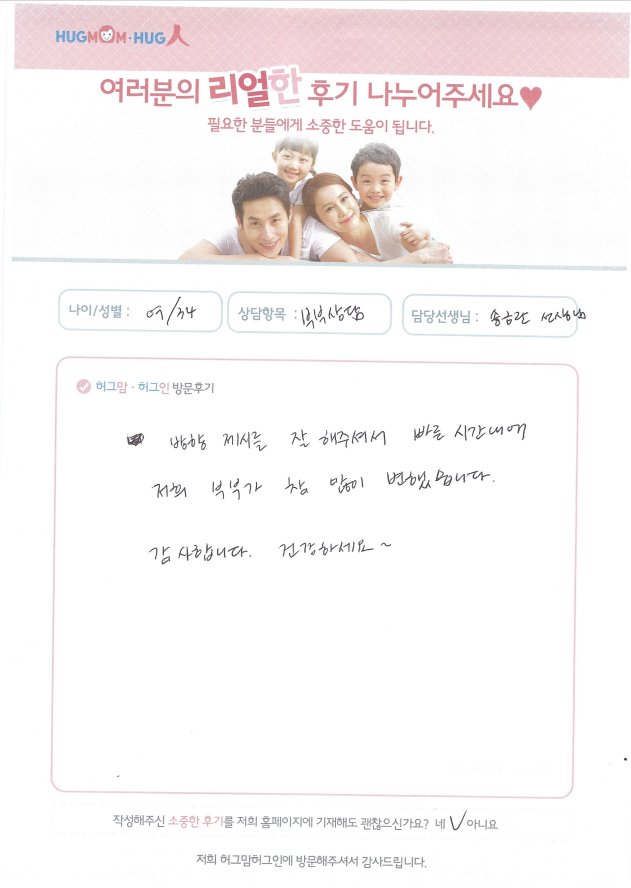 HUGMOM·HUG人
여러분의 리얼한 후기 나누어주세요♥
필요한 분들에게 소중한 도움이 됩니다.
나이/성별 : 여/34 상담항목 : 부부상담 담당선생님 : 송금란 선생님
허그맘 · 허그인 방문후기
방향 제시를 잘 해주셔서 빠른 시간내에
저희 부부가 참 많이 변했습니다.
감사합니다. 건강하세요~
작성해주신 소중한 후기를 저희 홈페이지에 기재해도 괜찮으신가요? 네 ✓ 아니요
저희 허그맘허그인에 방문해주셔서 감사드립니다.